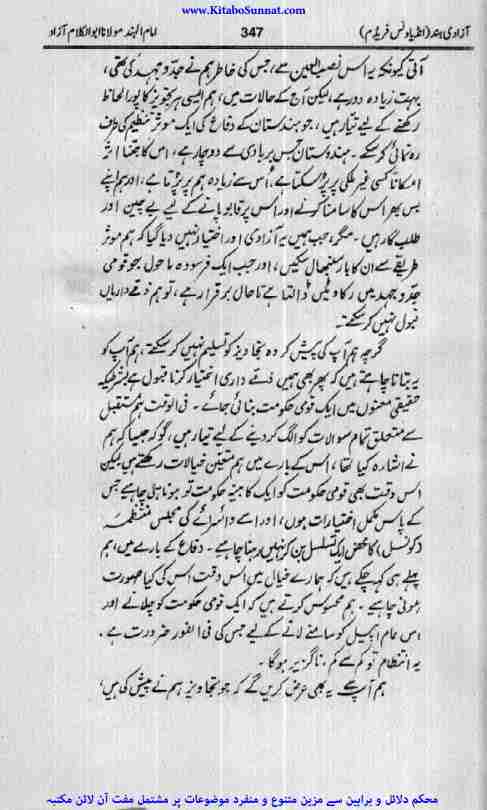 www.KitaboSunnat.com
آزادیٔ ہند (انڈیا ونس فریڈم) 347 امام الہند مولانا ابوالکلام آزاد
آتی کیونکہ یہ اس نصب العین سے، جس کی خاطر ہم نے جدوجہد کی تھی،
بہت زیادہ دور ہے، لیکن آج کے حالات میں، ہم ایسی ہر تجویز کا پورا لحاظ
رکھنے کے لیے تیار ہیں، جو ہندستان کے دفاع کی ایک موثر تنظیم کی طرف
رہنمائی کر سکے۔ ہندوستان جس بربادی سے دوچار ہے، اس کا جتنا اثر
امکاناً کسی غیر ملکی پر پڑ سکتا ہے، اس سے زیادہ ہم پر پڑتا ہے، اور ہم اپنے
بس بھر اس کا سامنا کرنے اور اس پر قابو پانے کے لیے بے چین اور
طلب گار ہیں۔ مگر، جب ہمیں یہ آزادی اور اختیار نہیں دیا گیا کہ ہم موثر
طریقے سے ان کا بار سنبھال سکیں، اور جب ایک فرسودہ ماحول جو قومی
جدوجہد میں رکاوٹیں ڈالتا ہے تاحال برقرار ہے، تو ہم ذمے داریاں
قبول نہیں کر سکتے۔
گرچہ ہم آپ کی پیش کردہ تجاویز کو تسلیم نہیں کر سکتے، ہم آپ کو
یہ بتانا چاہتے ہیں کہ پھر بھی ہمیں ذمے داری اختیار کرنا قبول ہے بشرطیکہ
حقیقی معنوں میں ایک قومی حکومت بنائی جائے۔ فی الوقت ہم مستقبل
سے متعلق تمام سوالات کو الگ کر دینے کے لیے تیار ہیں، گو کہ جیسا کہ ہم
نے اشارہ کیا تھا، اس کے بارے میں ہم متعین خیالات رکھتے ہیں لیکن
اس وقت بھی قومی حکومت کو ایک کابینہ حکومت تو ہونا ہی چاہیے جس
کے پاس مکمل اختیارات ہوں، اور اسے وائسرائے کی مجلس منتظمہ
(کونسل) کا محض ایک تسلسل بن کر نہیں رہنا چاہیے۔ دفاع کے بارے میں، ہم
پہلے ہی کہہ چکے ہیں کہ ہمارے خیال میں اس وقت اس کی کیا صورت
ہونی چاہیے۔ ہم محسوس کرتے ہیں کہ ایک قومی حکومت کو چلانے اور
اس عام اپیل کو سامنے لانے کے لیے جس کی فی الفور ضرورت ہے۔
یہ انتظام تو کم سے کم، ناگزیر ہوگا۔
ہم آپ سے یہ بھی عرض کریں گے کہ جو تجاویز ہم نے پیش کی ہیں،
محکم دلائل و براہین سے مزین متنوع و منفرد موضوعات پر مشتمل مفت آن لائن مکتبہ